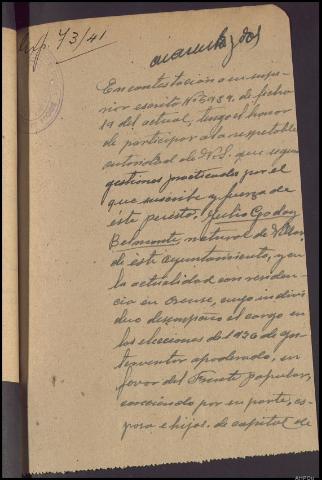 Exp. 73/41
cuarenta y dos
En contestación a su supe-
rior escrito Nº 5939. de fecha
19 del actual, tengo el honor
de participar a la respetable
autoridad de V.S. que segun
gestiones practicadas por el
que suscribe y fuerza de
éste puesto, Julio Godoy
Belmonte, natural de
de éste ayuntamiento, y en
la actualidad con residen-
cia en Orense, cuyo indivi-
duo desempeño el cargo en
las elecciones del 936 de In-
terventor apoderado, en
favor del Frente Popular,
por su parte, es-
posa e hijos. de capital de